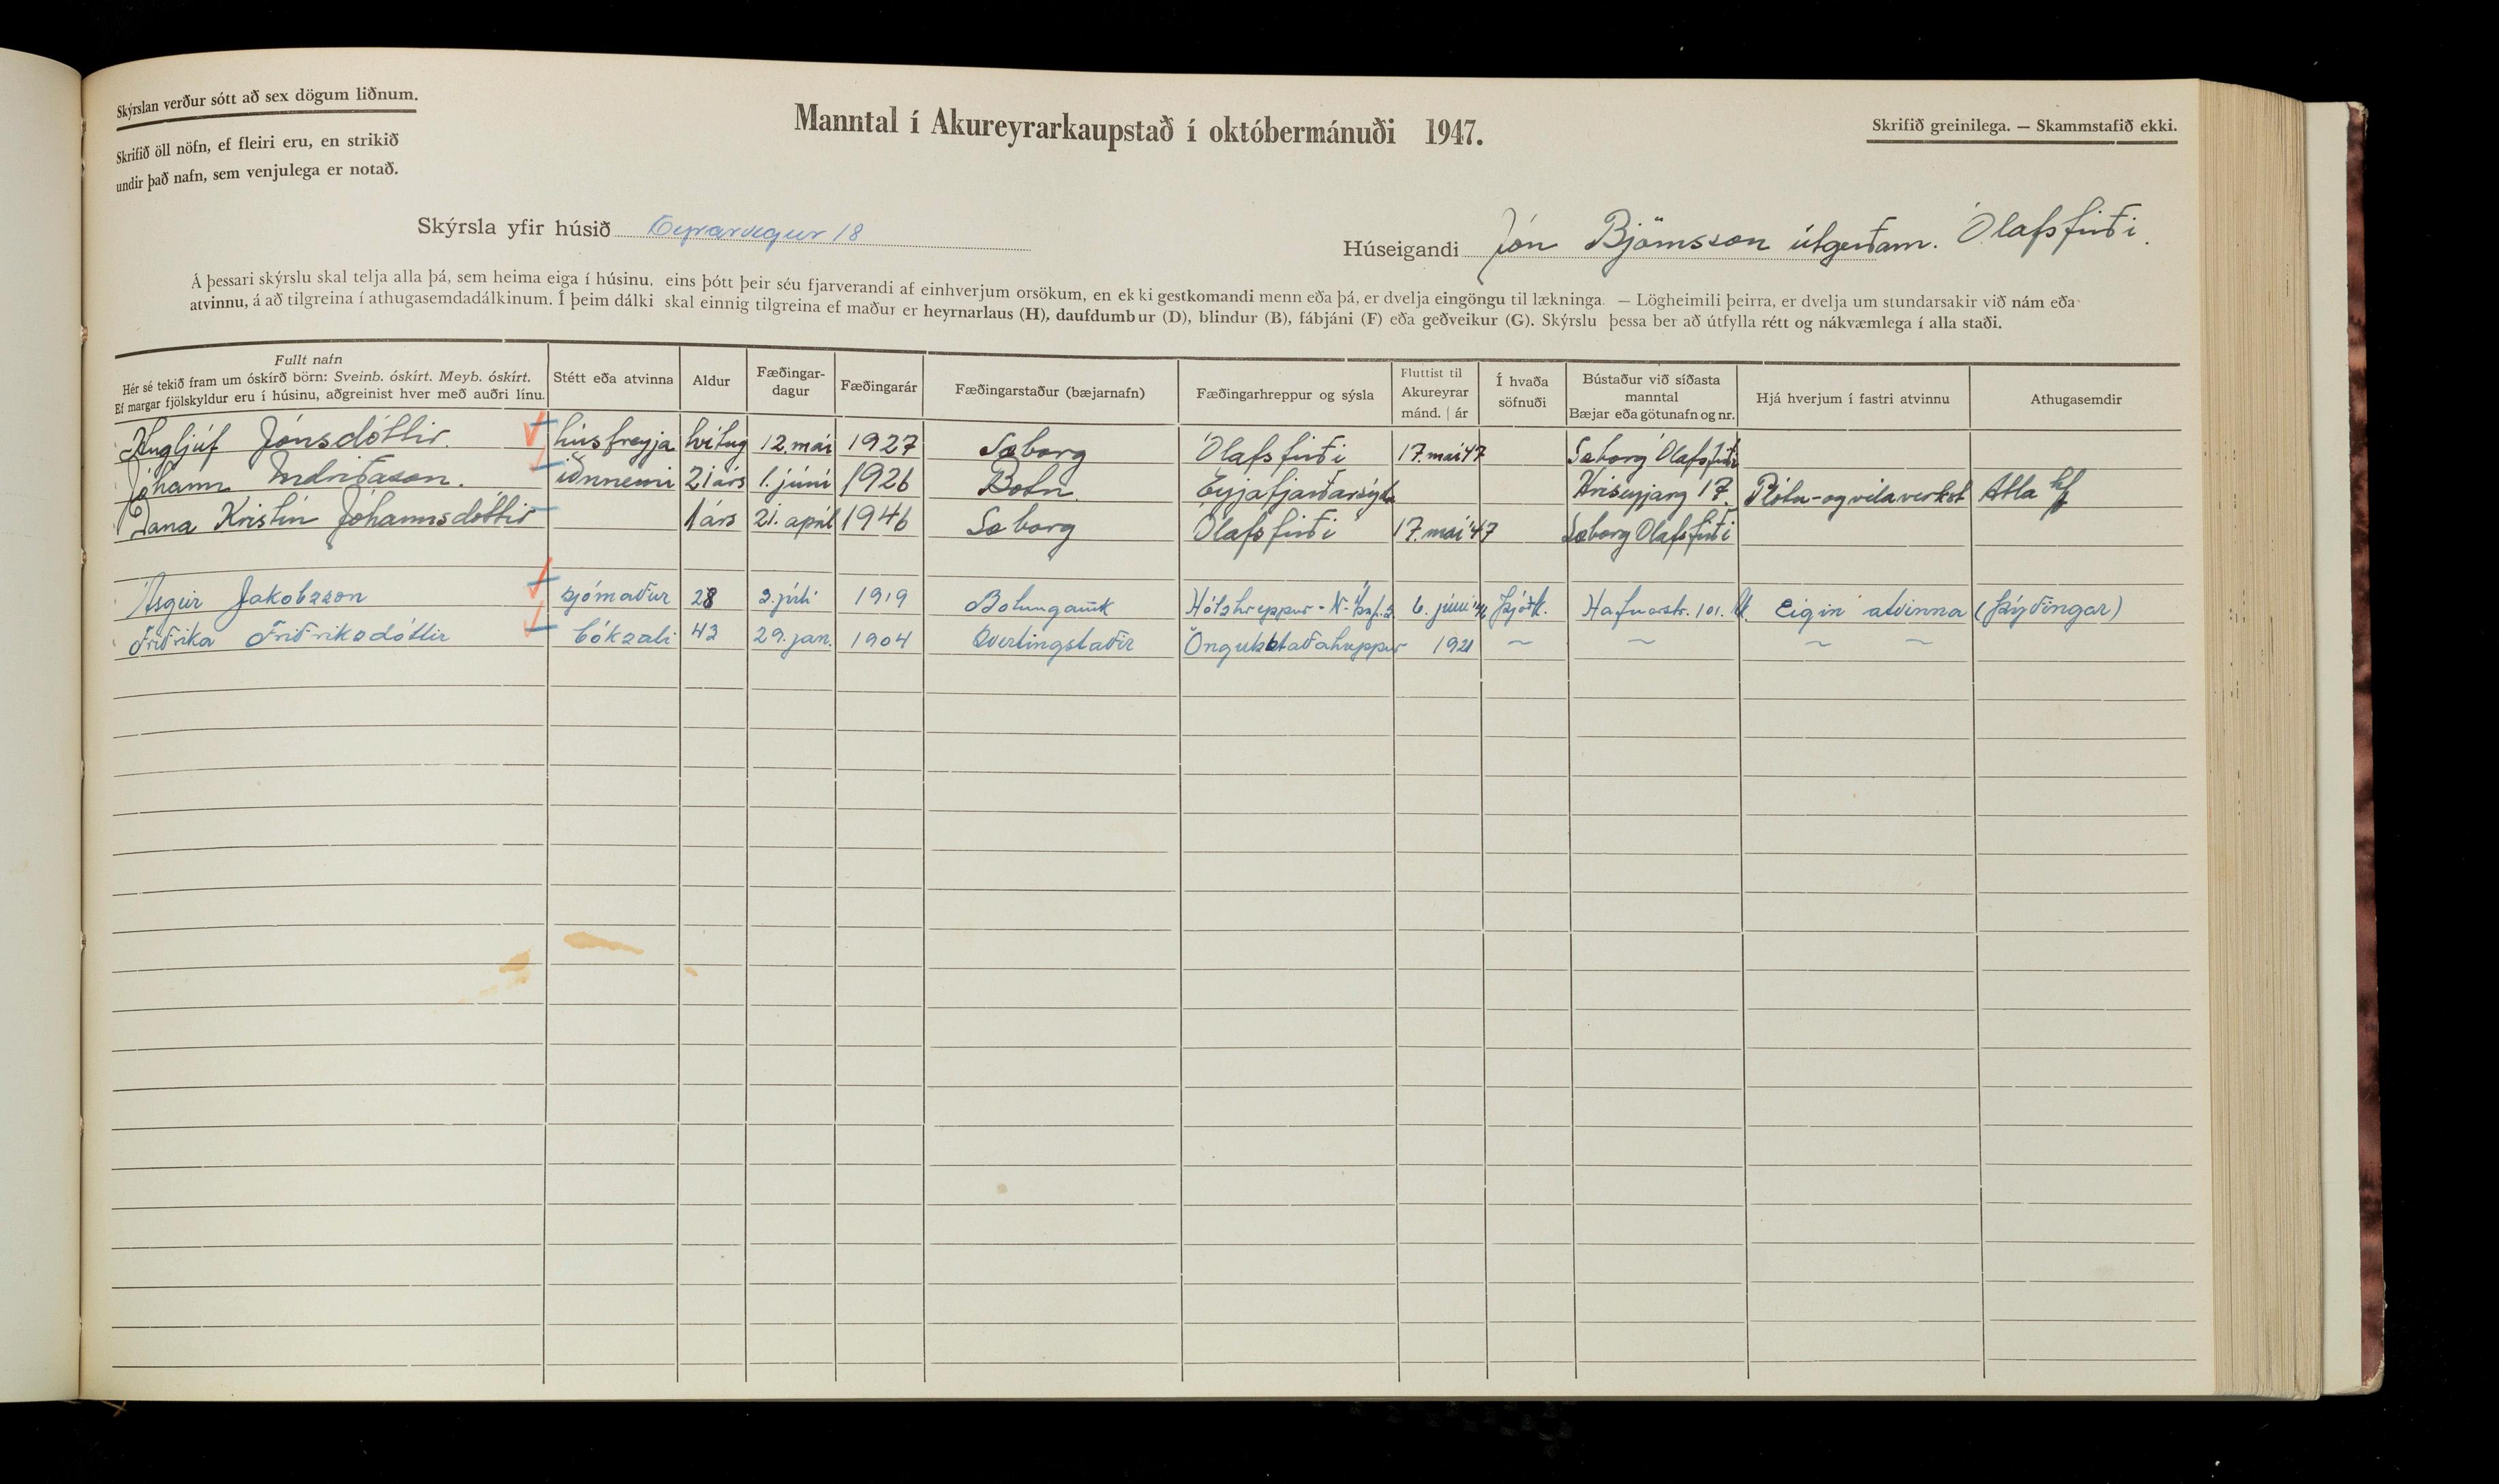 Skýrslan verður sótt að sex dögum liðnum.
Skrifið öll nöfn, ef fleiri eru, en strikið
undir það nafn, sem venjulega er notað.
Manntal í Akureyrarkaupstað í októbermánuði 1947.
Skrifið greinilega. — Skammstafið ekki.
Skýrsla yfir húsið Eyrarvegur 18
Húseigandi Jón Björnsson útgerðam. Ólafsfirði.
Á þessari skýrslu skal telja alla þá, sem heima eiga í húsinu, eins þótt þeir séu fjarverandi af einhverjum orsökum, en ekki gestkomandi menn eða þá, er dvelja eingöngu til lækninga. — Lögheimili þeirra, er dvelja um stundarsakir við nám eða
atvinnu, á að tilgreina í athugasemdadálkinum. Í þeim dálki skal einnig tilgreina ef maður er heyrnarlaus (H), daufdumbur (D), blindur (B), fábjáni (F) eða geðveikur (G). Skýrslu þessa ber að útfylla rétt og nákvæmlega í alla staði.
Fullt nafn
Hér sé tekið fram um óskírð börn: Sveinb. óskírt. Meyb. óskírt.
Ef margar fjölskyldur eru í húsinu, aðgreinist hver með auðri línu.
Stétt eða atvinna
Aldur
Fæðingar-
dagur
Fæðingarár
Fæðingarstaður (bæjarnafn)
Fæðingarhreppur og sýsla
Fluttist til
Akureyrar
mánd. | ár
Í hvaða
söfnuði
Bústaður við síðasta
manntal
Bæjar eða götunafn og nr.
Hjá hverjum í fastri atvinnu
Athugasemdir
Hugljúf Jónsdóttir. húsfreyja tvítug 12. maí 1927 Sæborg Ólafsfirði 17. maí '47 Sæborg Ólafsfirði
Jóhann Indriðason. iðnnemi 21 árs 1. júní 1926 Botn. Eyjafjarðarsýsla Hríseyjarg 17. Plötu- og vélaverkst Atla hf
Jana Kristín Jóhannsdóttir 1 árs 21. apríl 1946 Sæborg Ólafsfirði 17. maí '47 Sæborg Ólafsfirði
Ásgeir Jakobsson sjómaður 28 3. júlí 1919 Bolungavík Hólshreppur - N. 6. júní Þjóðk. Hafnarstr. 101. Eigin atvinna (Þýðingar)
Friðrika Friðriksdóttir bóksali 43 29. jan. 1904 Sverlingstaðir Öngulstaðahreppur 1921 ~ ~ ~ ~